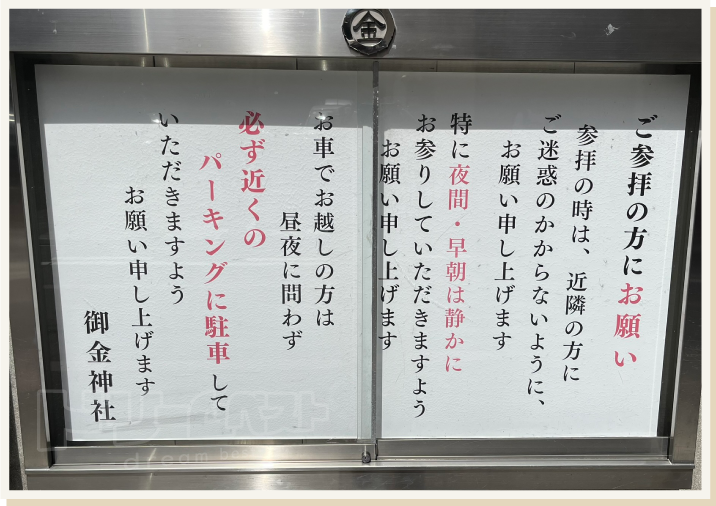 金
ご参拝の方にお願い
参拝の時は、近隣の方に
ご迷惑のかからないように、
お願い申し上げます
特に夜間・早朝は静かに
お参りしていただきますよう
お願い申し上げます
お車でお越しの方は
昼夜に問わず
必ず近くの
パーキングに駐車して
いただきますよう
お願い申し上げます
御金神社